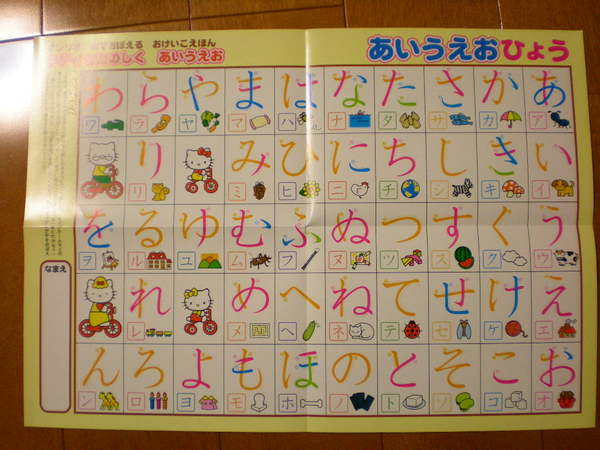 おぼえる おけいこえほん
たのしく あいうえお
あいうえおひょう
あ ア
い イ
う ウ
え エ
お オ
か カ
き キ
く ク
け ケ
こ コ
さ サ
し シ
す ス
せ セ
そ ソ
た タ
ち チ
つ ツ
て テ
と ト
な ナ
に ニ
ぬ ヌ
ね ネ
の ノ
は ハ
ひ ヒ
ふ フ
へ ヘ
ほ ホ
ま マ
み ミ
む ム
め メ
も モ
や ヤ
ゆ ユ
よ ヨ
ら ラ
り リ
る ル
れ レ
ろ ロ
わ ワ
を ヲ
ん ン
なまえ